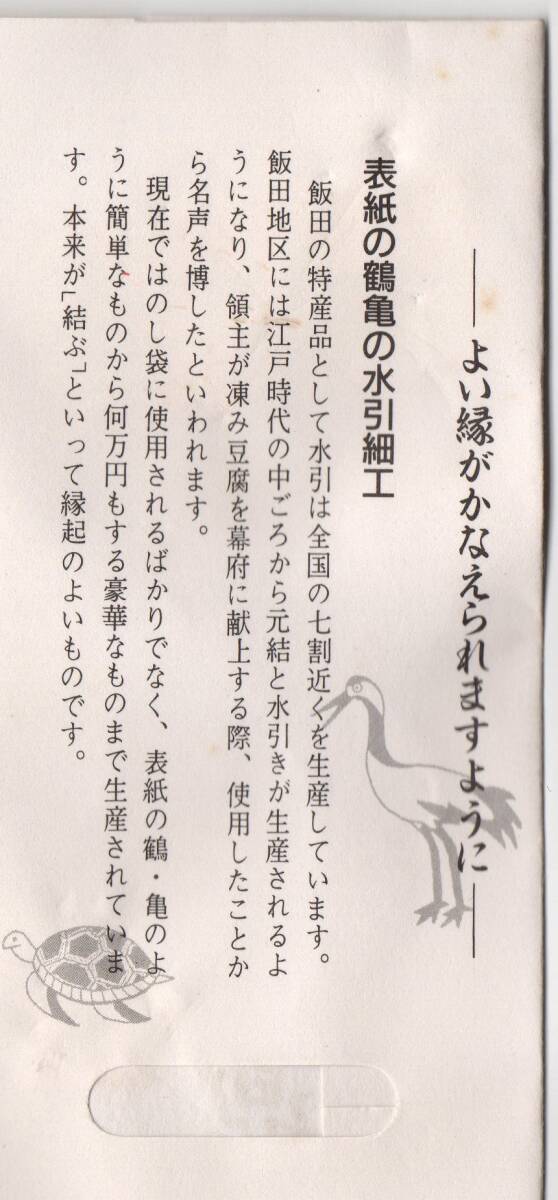 ――よい縁がかなえられますように――
表紙の鶴亀の水引細工
飯田の特産品として水引は全国の七割近くを生産しています。
飯田地区には江戸時代の中ごろから元結と水引きが生産されるよ
うになり、領主が凍み豆腐を幕府に献上する際、使用したことか
ら名声を博したといわれます。
現在ではのし袋に使用されるばかりでなく、表紙の鶴・亀のよ
うに簡単なものから何万円もする豪華なものまで生産されていま
す。本来が「結ぶ」といって縁起のよいものです。